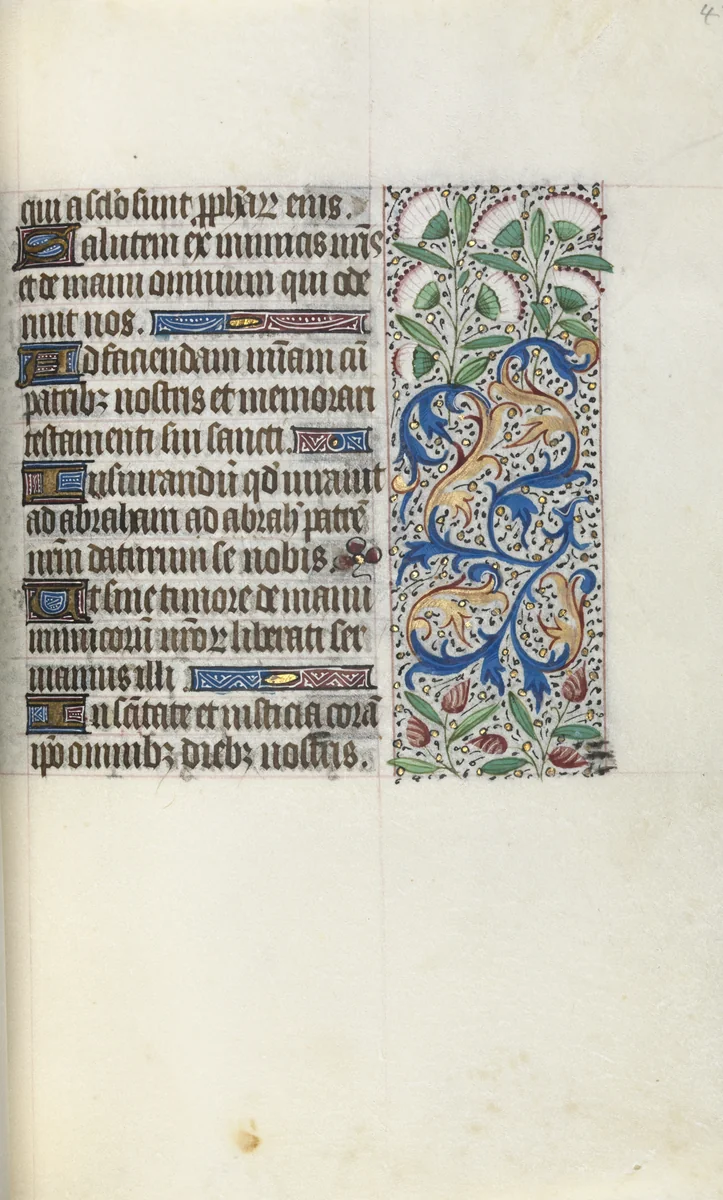 4
qui a sclo sunt ꝓphaꝝ eius.
Salutem ex inimicis nris
et de manu omnium qui ode
runt nos.
Ad faciendam miam cū
patribꝫ nostris et memorari
testamenti sui sancti.
Iusiurandū qd iurauit
ad abraham ad abrah patrē
nrm daturum se nobis.
Ut sine timore de manu
inimicorū nroꝝ liberati ser
uiamus illi
In sctitate et iusticia corā
ipo omnibꝫ diebꝫ nostris.